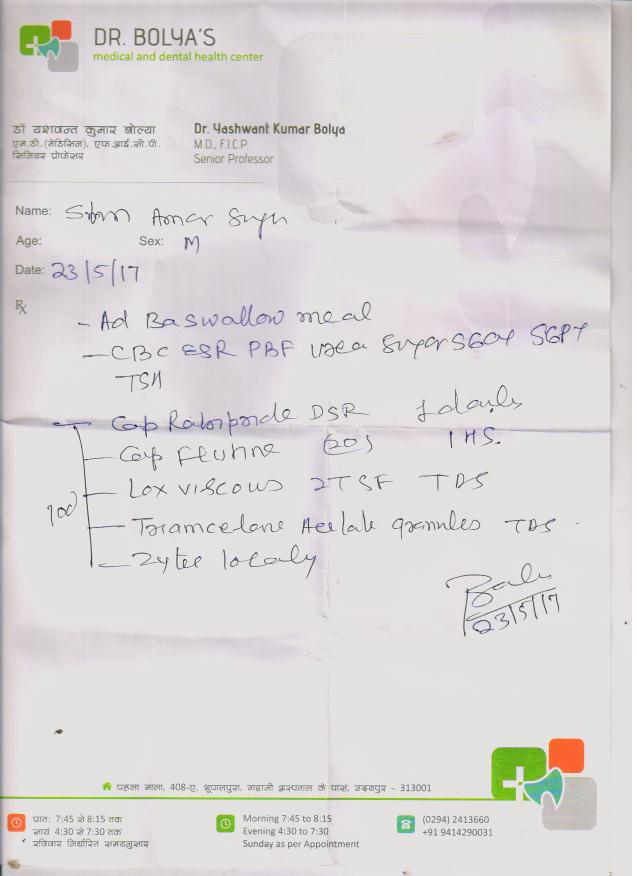 DR. BOLYA'S
medical and dental health center
डॉ यशवन्त कुमार बोल्या
एम.डी.(मेडिसिन), एफ.आई.सी.पी.
सिनियर प्रोफेसर
Dr. Yashwant Kumar Bolya
M.D., F.I.C.P.
Senior Professor
Name: Amar
Age: Sex: M
Date: 23/5/17
Rx
- Ad Baswallow meal
- CBC ESR PBF Urea Sugar SGOT SGPT
TSH
Cap DSR 1 daily
Cap Flutine (20) 1 HS.
- Lox viscous 2 TSF TDS
- Acetate granules TDS
- Zytee localy
23/5/17
पहला माला, 408-ए, भूपालपुरा, गट्टानी अस्पताल के पास, उदयपुर - 313001
प्रातः 7:45 से 8:15 तक
सायं 4:30 से 7:30 तक
रविवार निर्धारित समयनुसार
Morning 7:45 to 8:15
Evening 4:30 to 7:30
Sunday as per Appointment
(0294) 2413660
+91 9414290031